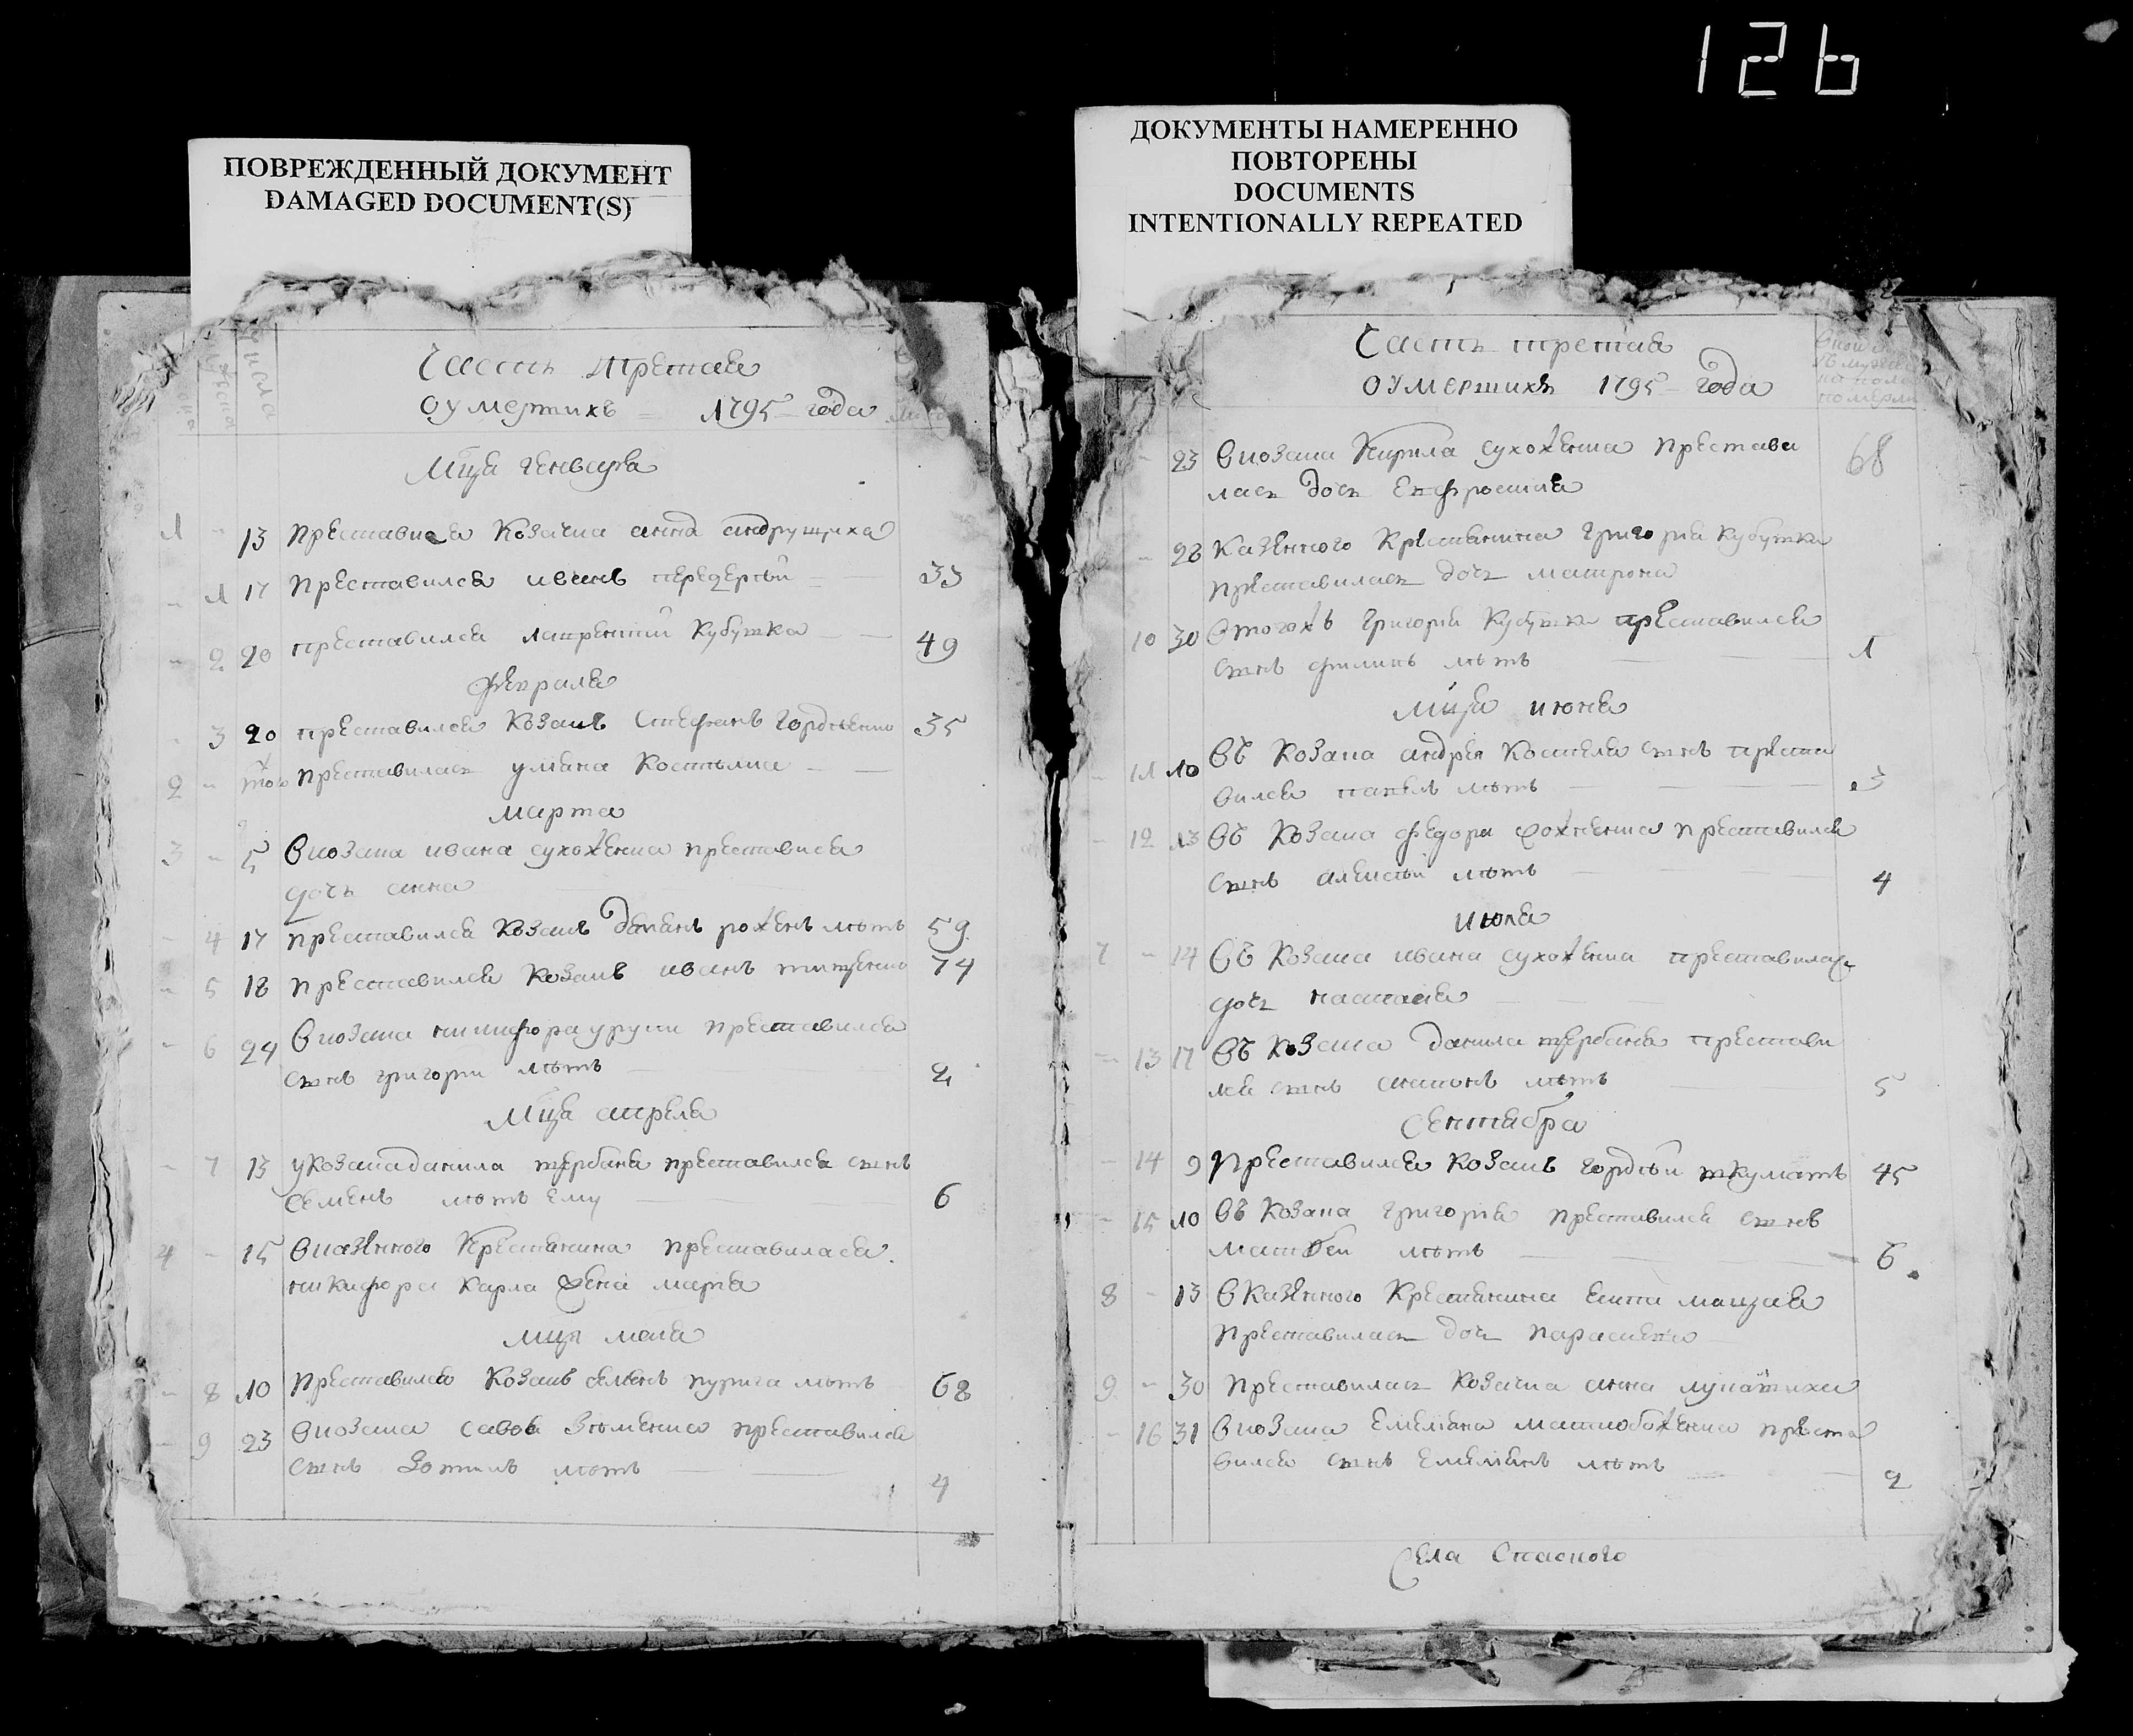 126
ПОВРЕЖДЕННЫЙ ДОКУМЕНТ
DAMAGED DOCUMENT(S)
ДОКУМЕНТЫ НАМЕРЕННО
ПОВТОРЕНЫ
DOCUMENTS
INTENTIONALLY REPEATED
числа
Часть третая
Оумершихъ 1795 года
Мца генваря
1 - 13 Преставися Козачка анна андрущиха
- 1 17 Преставился иванъ передерѣй 33
- 2 20 преставился лаврентий Кубушка 49
февраля
- 3 20 преставился Козакъ Стефанъ Гордѣенко 35
2 - тож преставилась уляна
марта
3 - 5 Вкозака ивана сухоженка преставися
дочь анна
- 4 17 преставился Козакъ роженъ лѣтъ 59
- 5 18 преставился Козакъ иванъ 74
- 6 24 Вкозака никифора преставился
сынъ григорий лѣтъ 2
Мца апреля
- 7 13 уКозака данила щербини преставился сынъ
семенъ лѣтъ ему 6
4 - 15 Вказенного Крестянина преставилася
никифора Карпа жена марфа
мця мая
- 8 10 Преставился Козакъ семенъ пурига лѣтъ 68
- 9 23 Вкозака савви преставился
сынъ лѣтъ 4
Часть третая
оумершихъ 1795 года
- 23 Вкозака Кирила сухоженка Престави
лась дочь Евфросиния 68
- 28 Казенного Крестянина Григория Кубушки
преставилась дочь матрона
10 30 Втогожъ Григория Кубушки преставился
сынъ филипъ лѣтъ 1
Мця июня
- 11 10 Въ Козака андрея сынъ преста
вился павелъ лѣтъ 3
- 12 13 Въ Козака федора преставился
сынъ алексѣй лѣтъ 4
июля
7 - 14 Въ Козака ивана сухоженка преставилась
дочь настасия
- 13 17 Въ Козака данила щербини престави
лся сынъ антонъ лѣтъ 5
Сентабра
- 14 9 Преставился Козакъ гордѣй лѣтъ 45
- 15 10 Въ Козака Григория преставился сынъ
матвей лѣтъ 6
8 - 13 Вказенного Крестянина
Преставилась дочь
9 - 30 Преставилась Козачка анна
- 16 31 Вкозака Емеляна преста
вился сынъ Емелянъ лѣтъ 2
Села Спаского